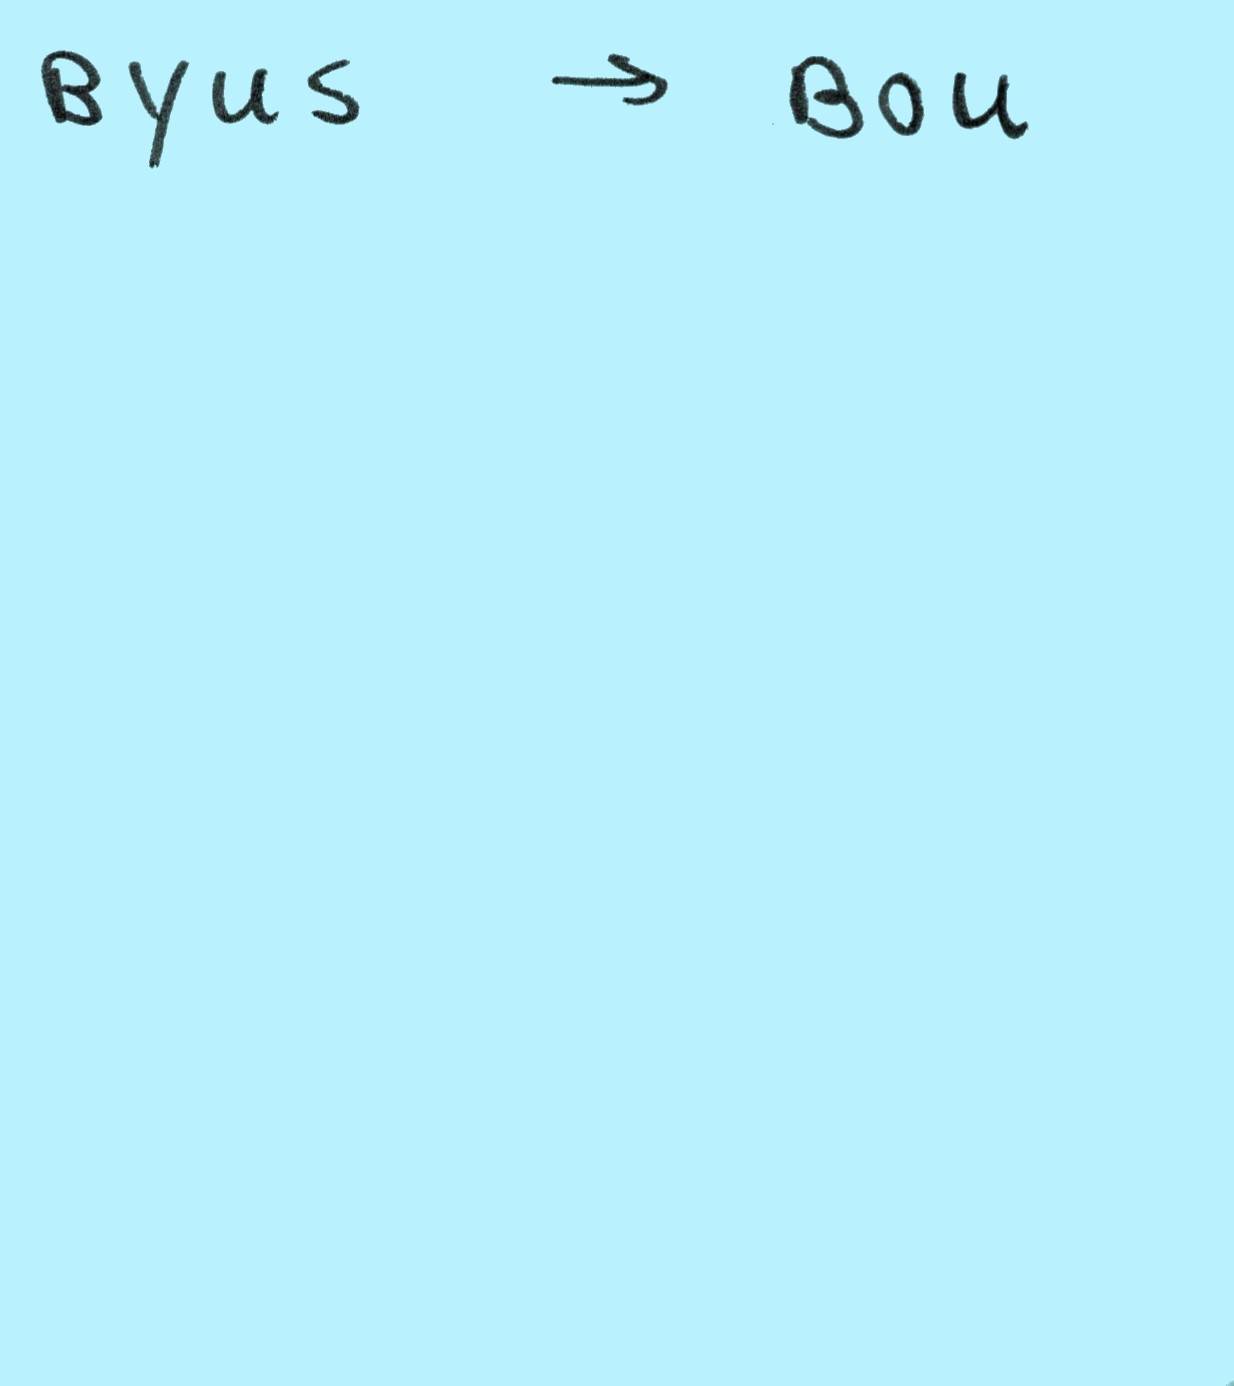 Byus → Bou